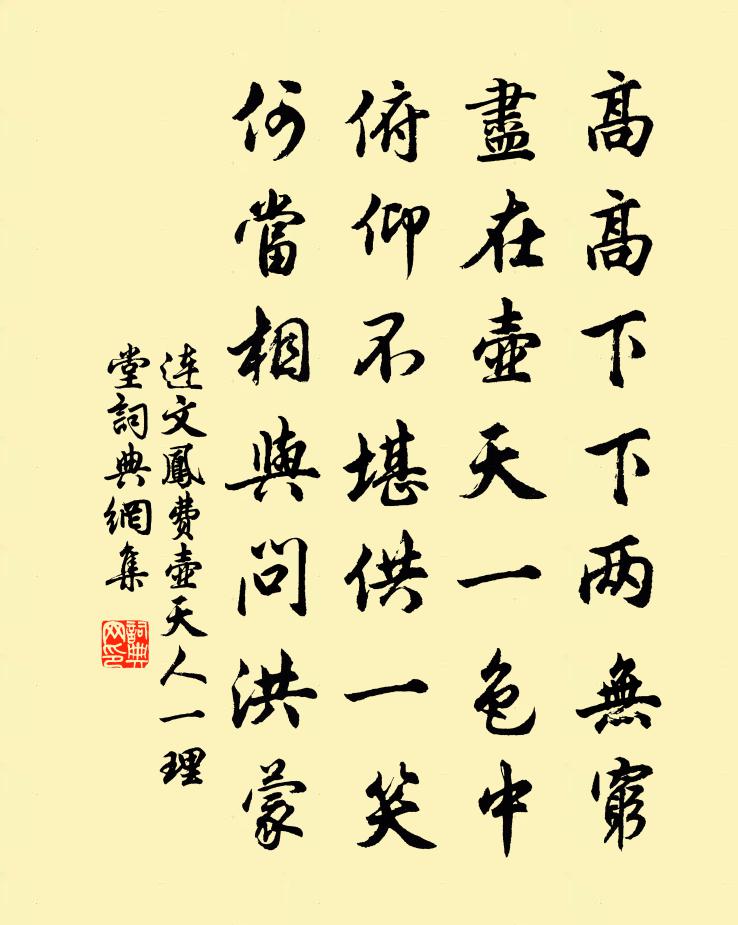 高高下下两無窮
盡在壺天一色中
俯仰不堪供一笑
何當相與問洪蒙
連文鳳費壺天人一理
堂詞典網集
詞典
网印